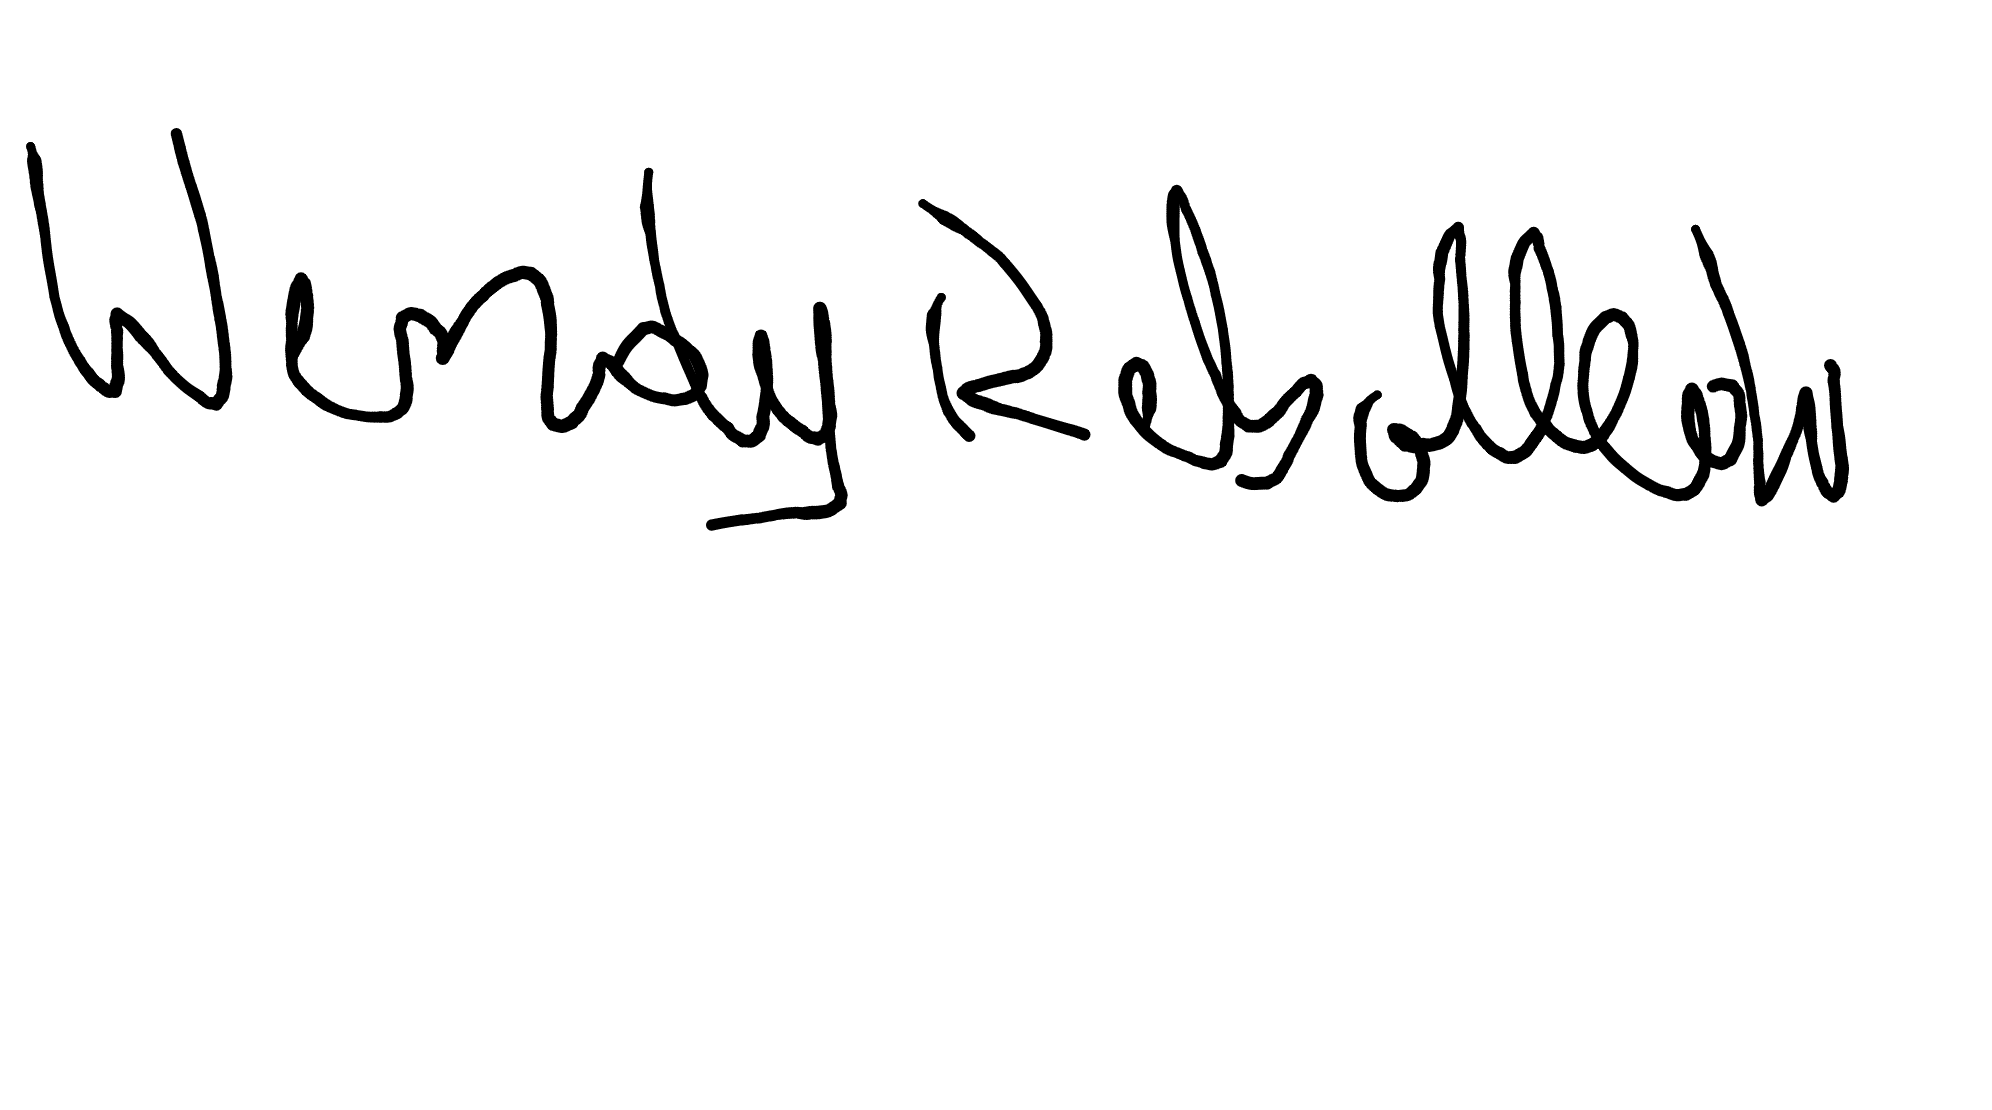 Wendy Rebolledo